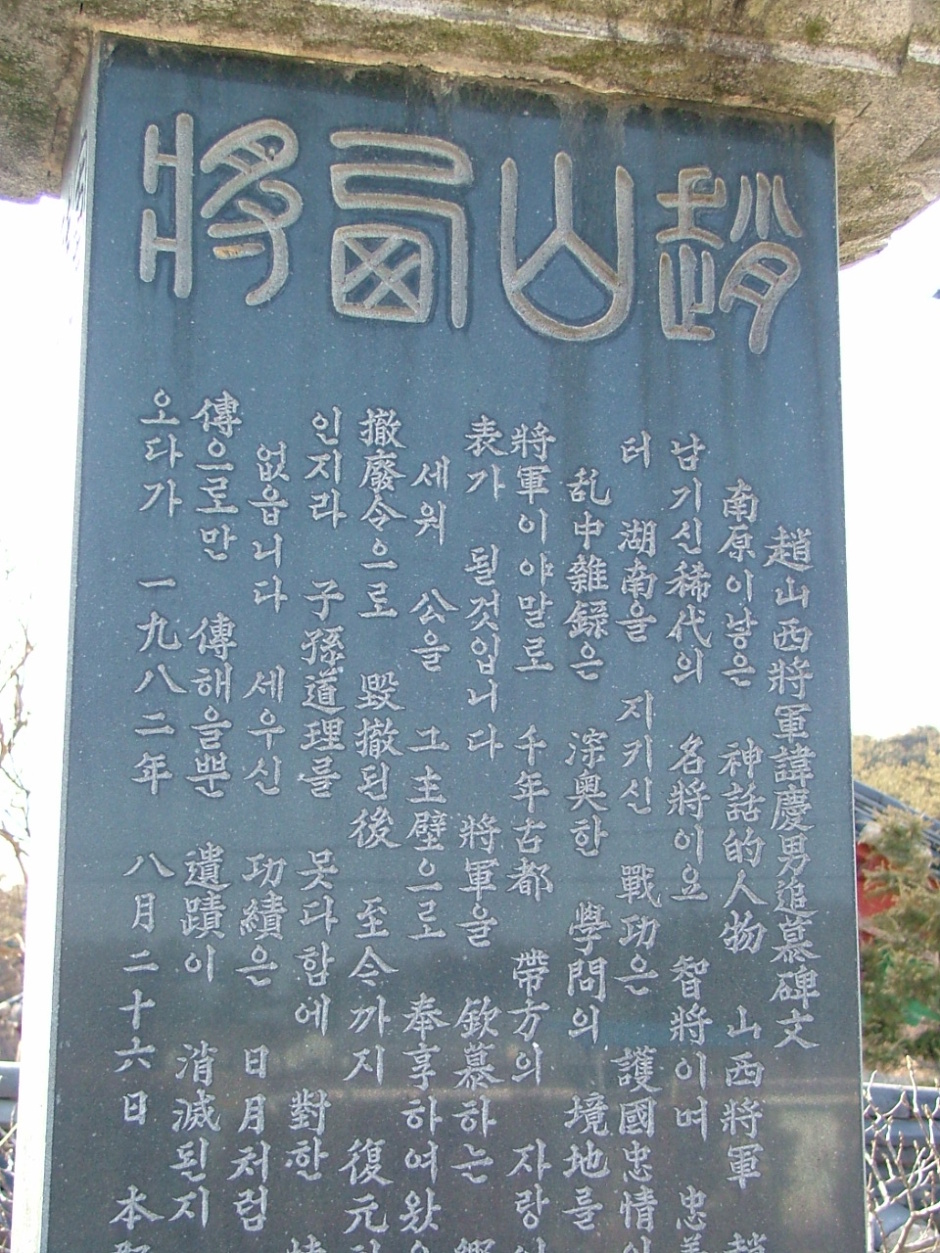 趙山西將
趙山西將軍諱慶男追慕碑文
南原이낳은 神話的人物 山西將軍 趙
남기신稀代의 名將이요 智將이며 忠義
터 湖南을 지키신 戰功은 護國忠情이
乱中雜錄은 深奥한 學問의 境地를
將軍이야말로 千年古都 帶方의 자랑
表가 될것입니다 將軍을 欽慕하는
세워 公을 그主壁으로 奉享하여왔
撤廢令으로 毁撤된後 至今까지 復元
인지라 子孫道理를 못다함에 對한
없읍니다 세우신 功績은 日月처럼
傳으로만 傳해올뿐 遺蹟이 消滅된지
오다가 一九八二年 八月二十六日 本